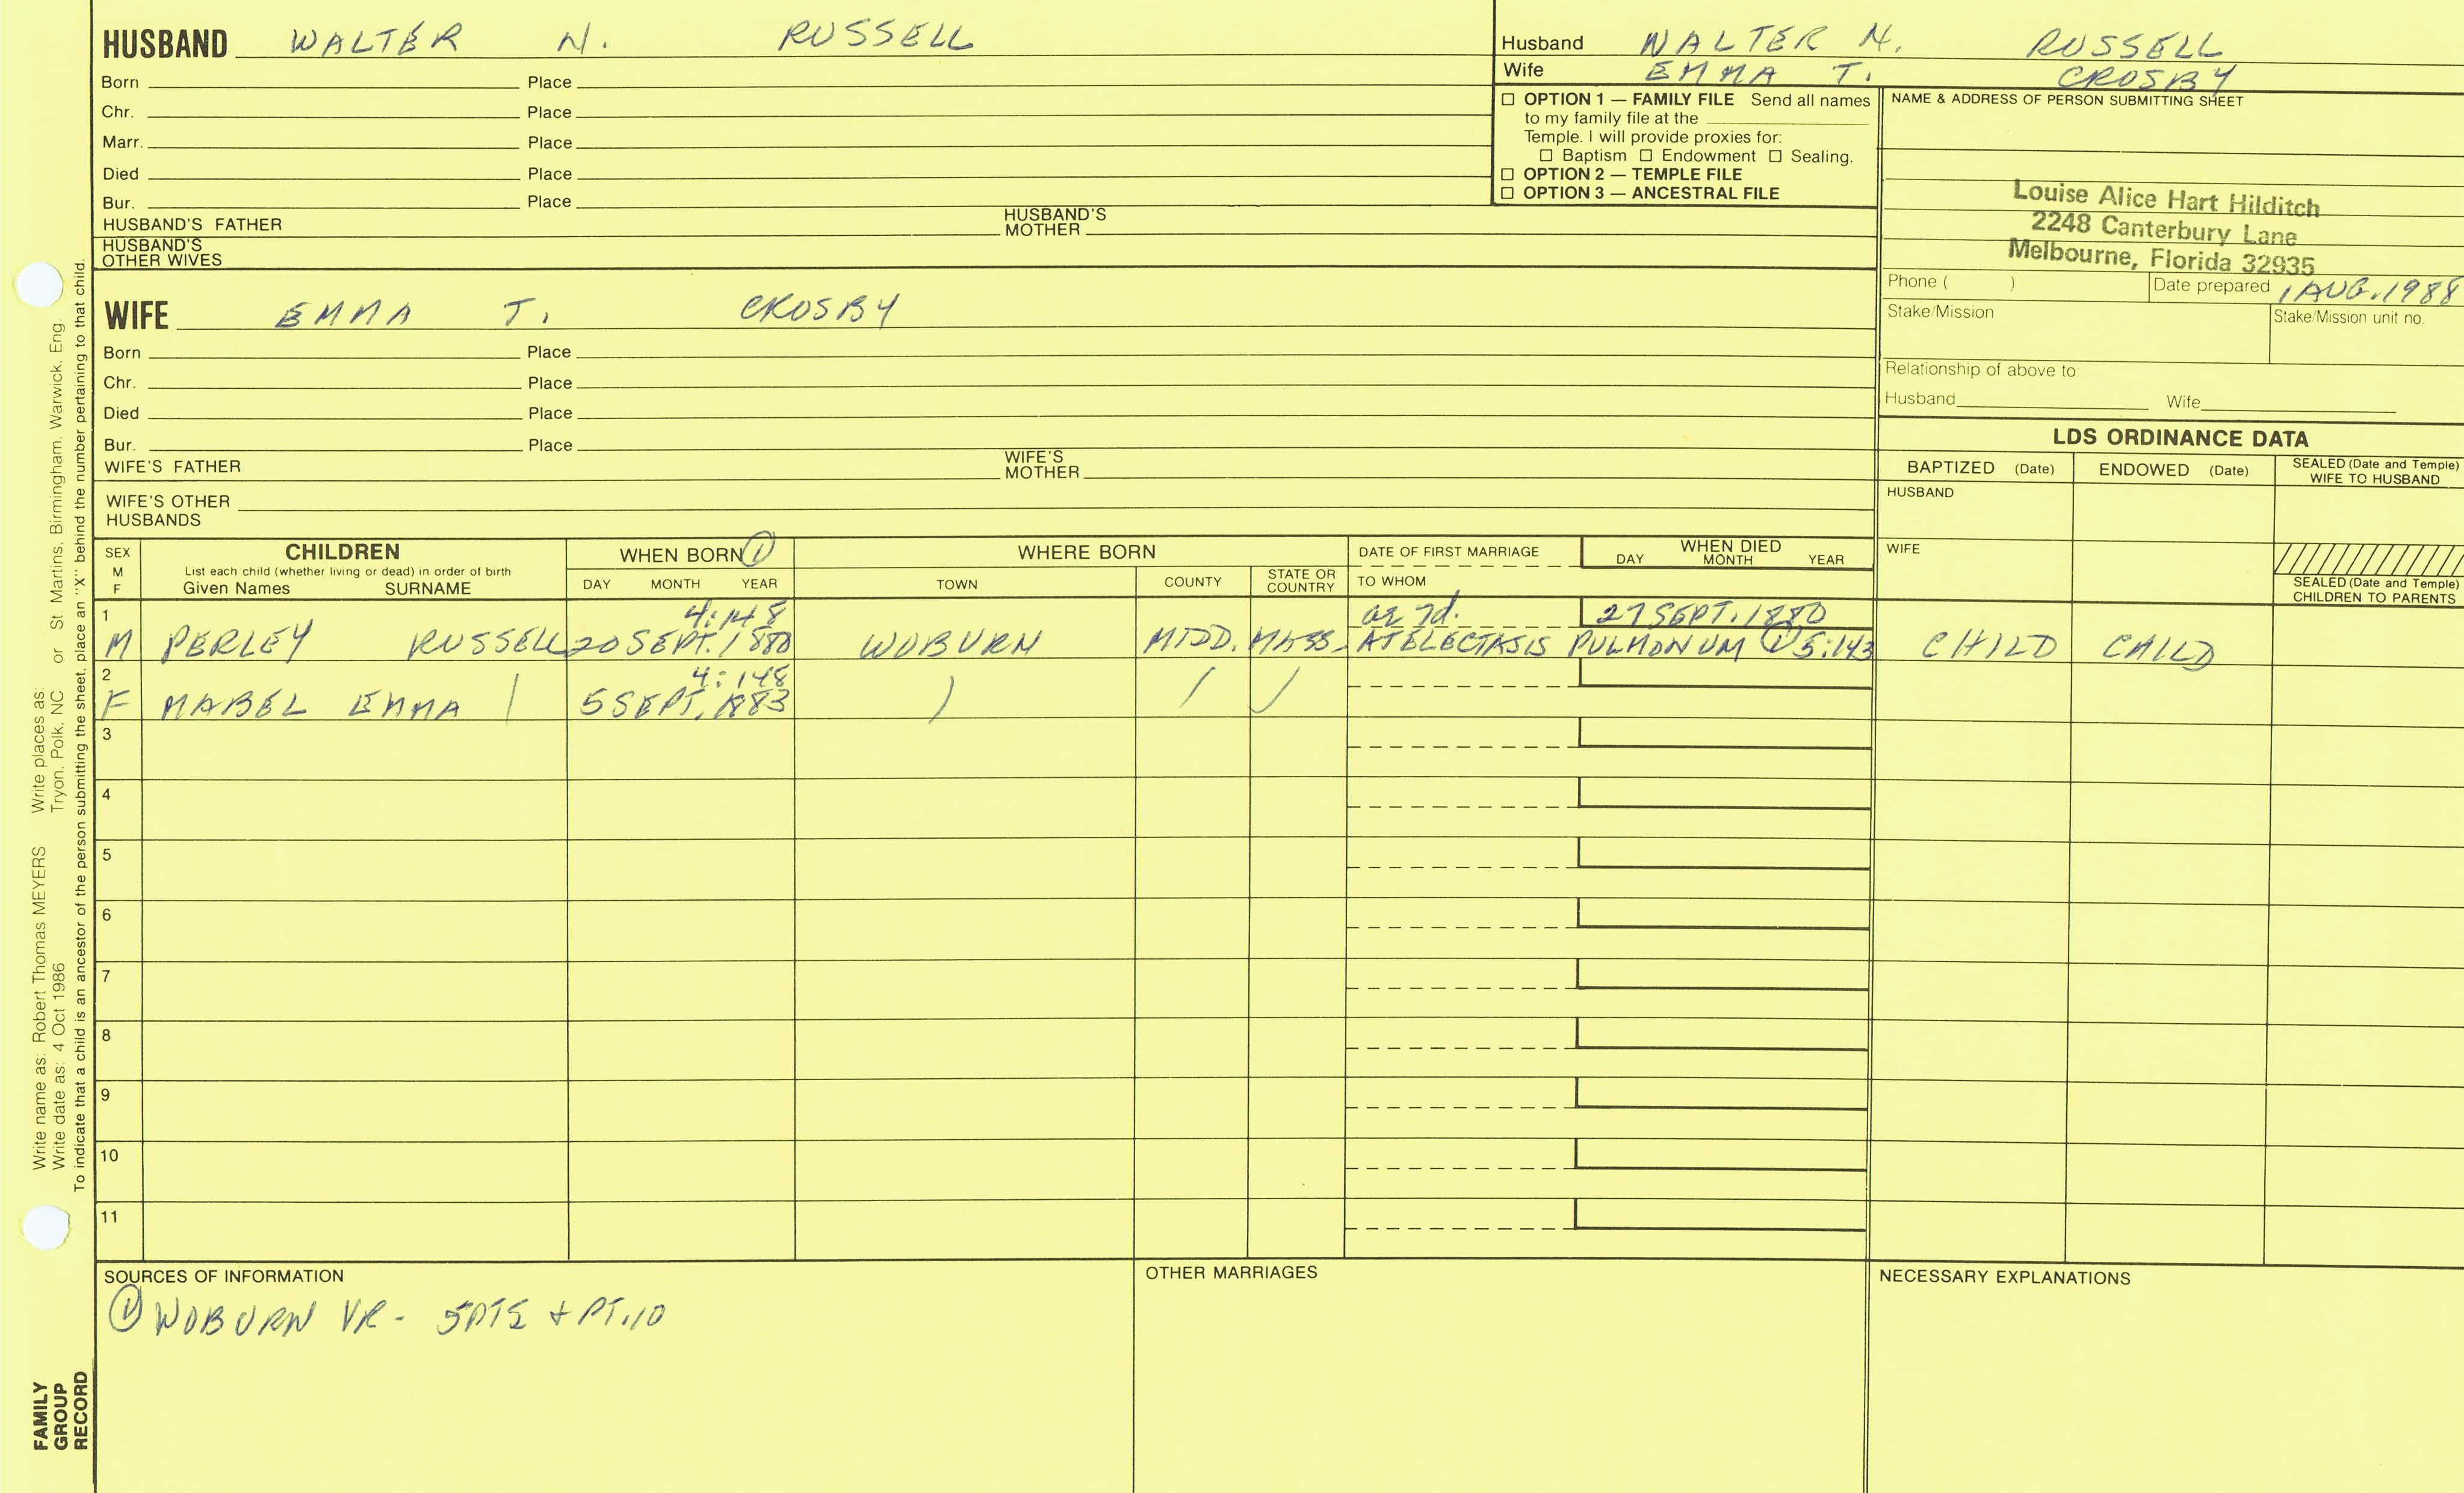 HUSBAND WALTER N. RUSSELL
Born Place
Chr. Place
Marr. Place
Died Place
Bur. Place
HUSBAND'S FATHER HUSBAND'S MOTHER
HUSBAND'S OTHER WIVES
WIFE EMMA T. CROSBY
Born Place
Chr. Place
Died Place
Bur. Place
WIFE'S FATHER WIFE'S MOTHER
WIFE'S OTHER HUSBANDS
Husband WALTER N. RUSSELL
Wife EMMA T. CROSBY
☐ OPTION 1 — FAMILY FILE Send all names
to my family file at the
Temple. I will provide proxies for:
☐ Baptism ☐ Endowment ☐ Sealing.
☐ OPTION 2 — TEMPLE FILE
☐ OPTION 3 — ANCESTRAL FILE
NAME & ADDRESS OF PERSON SUBMITTING SHEET
Louise Alice Hart Hilditch
2248 Canterbury Lane
Melbourne, Florida 32935
Phone ( ) Date prepared 1 AUG. 1988
Stake/Mission Stake/Mission unit no.
Relationship of above to:
Husband Wife
LDS ORDINANCE DATA
BAPTIZED (Date) ENDOWED (Date) SEALED (Date and Temple) WIFE TO HUSBAND
HUSBAND
WIFE
SEALED (Date and Temple) CHILDREN TO PARENTS
SEX M F
CHILDREN
List each child (whether living or dead) in order of birth
Given Names SURNAME
WHEN BORN ①
DAY MONTH YEAR
WHERE BORN
TOWN COUNTY STATE OR COUNTRY
DATE OF FIRST MARRIAGE
TO WHOM
WHEN DIED
DAY MONTH YEAR
1 4:148 ae 7d. 27 SEPT. 1880
M PERLEY RUSSELL 20 SEPT. 1880 WOBURN MIDD. MASS. ATELECTASIS PULMONUM ① 5:143 CHILD CHILD
2 4:148
F MABEL EMMA 5 SEPT. 1883
3
4
5
6
7
8
9
10
11
SOURCES OF INFORMATION
① WOBURN VR - 5 PTS + PT.10
OTHER MARRIAGES
NECESSARY EXPLANATIONS
Write name as: Robert Thomas MEYERS Write places as:
Write date as: 4 Oct 1986 Tryon, Polk, NC or St. Martins, Birmingham, Warwick, Eng.
To indicate that a child is an ancestor of the person submitting the sheet, place an "X" behind the number pertaining to that child.
FAMILY
GROUP
RECORD